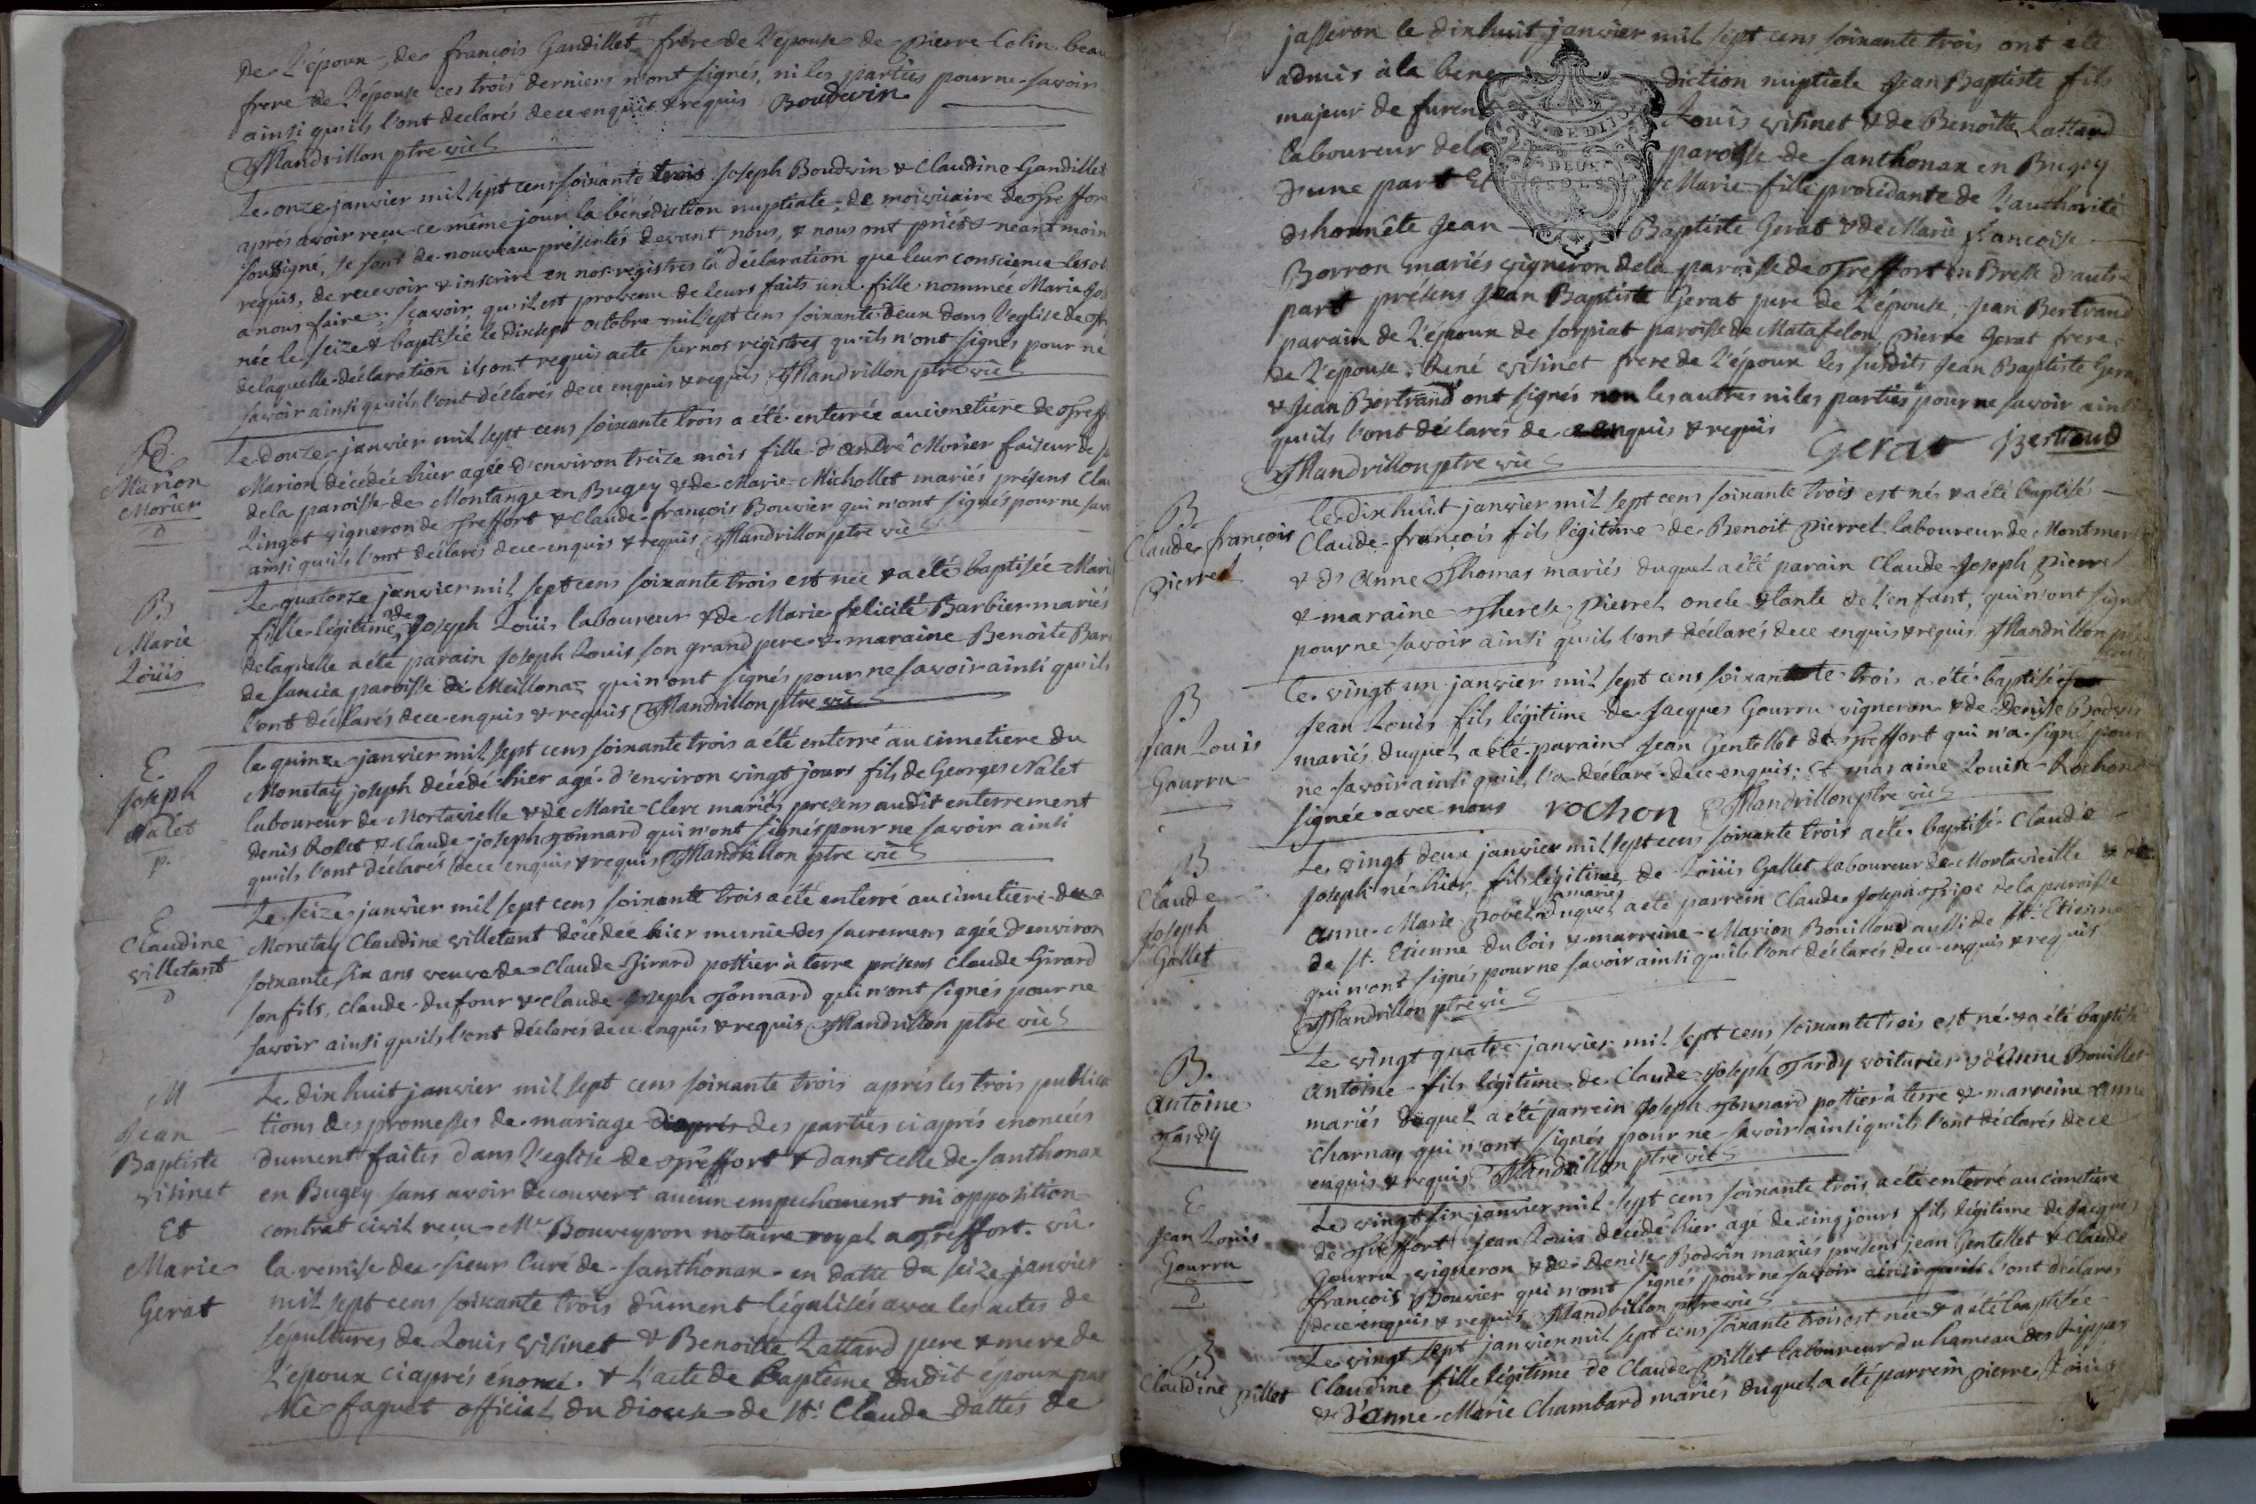 de L'époux, de françois Gandillet frère de L'épouse de pierre Colin beau
frere de L'épouse ces trois derniers n'ont signés, ni les parties pour ne savoir
ainsi qu'ils l'ont declarés de ce enquis & requis Boudevin
Mandrillon ptre vic
Le onze janvier mil sept cens soixante trois Joseph Boudvin & Claudine Gandillet
après avoir reçu ce même jour la bénédiction nuptiale de moi vicaire de Treffort
soussigné, se sont de nouveau présentés devant nous, & nous ont priés & néantmoin
requis, de recevoir & inscrire en nos registres la déclaration que leur conscience les
a nous faire; sçavoir, qu'il est provenu de leurs faits une fille nommée Marie
née le seize & baptisée le dixsept octobre mil sept cens soixante deux dans l'eglise de
de laquelle déclaration ils ont requis acte sur nos registres qu'ils n'ont signés pour ne
savoir ainsi qu'ils l'ont déclarés de ce enquis & requis Mandrillon ptre vic
Marion
Morier
Le douze janvier mil sept cens soixante trois a été enterrée au cimetiere de Treff
Marion décédée hier agée d'environ treize mois fille d'andré Morier faiseur de
de la paroisse de Montange en Bugey & de Marie Michollet mariés présens Cla
Lingot vigneron de Treffort & Claude françois Bouvier qui n'ont signés pour ne sav
ainsi qu'ils l'ont déclarés de ce enquis & requis Mandrillon ptre vic
B
Marie
Loüis
Le quatorze janvier mil sept cens soixante trois est née & a été baptisée Mari
fille légitime de Joseph Loüis laboureur & de Marie felicité Barbier mariés
de laquelle a été parain Joseph Louis son grand pere & maraine Benoite Bar
de sancia paroisse de Meillonaz qui n'ont signés pour ne savoir ainsi qu'ils
l'ont déclarés de ce enquis & requis Mandrillon ptre vic
E.
Joseph
Nalet
p.
le quinze janvier mil sept cens soixante trois a été enterré au cimetiere du
Monetay joseph décédé hier agé d'environ vingt jours fils de Georges Nalet
laboureur de Mortavielle & de Marie Clerc mariés presens audit enterrement
denis Rollet & Claude joseph Tonnard qui n'ont signés pour ne savoir ainsi
qu'ils l'ont déclarés de ce enquis & requis Mandrillon ptre vic
E
Claudine
villetant
Le seize janvier mil sept cens soixante trois a été enterré au cimetiere de
Monetay Claudine villetant décédée hier munie des sacremens agée d'environ
soixante six ans veuve de Claude Girard pottier à terre présens Claude Girard
son fils, Claude dufour & Claude joseph Tonnard qui n'ont signés pour ne
savoir ainsi qu'ils l'ont déclarés de ce enquis & requis Mandrillon ptre vic
M
Jean
Baptiste
visinet
Et
Marie
Gerat
Le dix huit janvier mil sept cens soixante trois après les trois publica
tions des promesses de mariage des parties ci après enoncées
dument faites dans l'eglise de Treffort & dans celle de santhonax
en Bugey sans avoir decouvert aucun empechement ni opposition
contrat civil reçu Me Bouveyron notaire royal a Treffort. vû
la remise de sieur Curé de santhonax en datte du seize janvier
mil sept cens soixante trois dûment légalisés avec les actes de
sépultures de Louis visinet & Benoitte Lattard pere & mere de
L'époux ci après énoncé. & L'acte de Baptême dudit époux par
Me faguet official du diocese de St. Claude dattés de
jasseron le dix huit janvier mil sept cens soixante trois ont été
admis à la bene diction nuptiale Jean Baptiste fils
majeur de furent Loüis visinet & de Benoitte Lattard
laboureur de la paroisse de santhonax en Bugey
d'une part Et Marie fille procédante de L'authorité
d'honnête Jean Baptiste Gerat & de Marie françoise
Borron mariés vigneron de la paroisse de Treffort en Bresse d'autre
part présens Jean Baptiste Gerat pere de L'épouse, Jean Bertrand
parain de L'époux de sorpiat paroisse de Matafelon, pierre Gerat frere
de L'épouse, René visinet frere de L'époux les susdits Jean Baptiste Gera
& Jean Bertrand ont signés non les autres ni les parties pour ne savoir ainsi
qu'ils l'ont déclarés de ce enquis & requis Gerat Bertrand
Mandrillon ptre vic
B
Claude françois
pierrel
le dix huit janvier mil sept cens soixante trois est nés & a été baptisés
Claude françois fils légitime de Benoit pierrel laboureur de Montmer
& d'Anne Thomas mariés duquel a été parain Claude Joseph pierrel
& maraine Therese pierrel oncle & tante de l'enfant, qui n'ont signé
pour ne savoir ainsi qu'ils l'ont déclarés de ce enquis & requis Mandrillon ptre
vic
B
jean Louis
Gourru
le vingt un janvier mil sept cens soixante trois a été baptisé
Jean Louis fils légitime de Jacques Gourru vigneron & de Denise Bodvin
mariés duquel a été parain Jean Gentellet de Treffort qui n'a signé pour
ne savoir ainsi qu'il l'a déclaré de ce enquis; Et maraine Louise Rochon
signée avec nous rochon Mandrillon ptre vic
B
Claude
Joseph
Gallet
Le vingt deux janvier mil sept cens soixante trois a été baptisé Claude
joseph né hier fils légitime de Loüis Gallet laboureur de Mortavieille & de
anne Marie pobel mariés duquel a été parrein Claude Joseph Tripe de la paroisse
de St. Etienne du bois & marreine Marion Bouilloud aussi de St. Etienne
qui n'ont signés pour ne savoir ainsi qu'ils l'ont déclarés de ce enquis & requis
Mandrillon ptre vic
B.
Antoine
Tardy
Le vingt quatre janvier mil sept cens soixante trois est né & a été baptisé
Antoine fils légitime de Claude Joseph Tardy voiturier & d'Anne Bouillet
mariés duquel a été parrein Joseph Tonnard pottier à terre & marreine anne
Charnay qui n'ont signés pour ne savoir ainsi qu'ils l'ont déclarés de ce
enquis & requis Mandrillon ptre vic
E
Jean Louis
Gourru
Le vingt six janvier mil sept cens soixante trois a été enterré au cimetiere
de Treffort Jean Louis décédé hier agé de cinq jours fils légitime de Jacques
Gourru vigneron & de Denise Bodvin mariés présens jean Gentellet & Claude
françois Bouvier qui n'ont signés pour ne savoir ainsi qu'ils l'ont déclarés
de ce enquis & requis Mandrillon ptre vic
B
Claudine pillet
Le vingt sept janvier mil sept cens soixante trois est née & a été baptisée
Claudine fille légitime de Claude pillet laboureur du hameau des Rippes
& d'Anne Marie Chambard mariés duquel a été parrein pierre Loüis